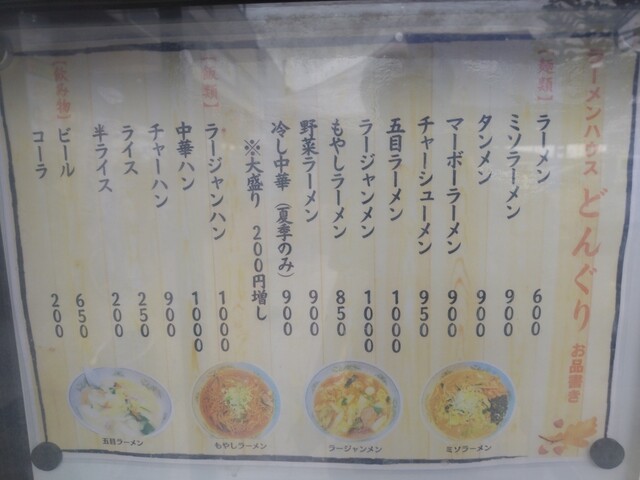 ラーメンハウス どんぐり お品書き
【麺類】
ラーメン 600
ミソラーメン 900
タンメン 900
マーボーラーメン 900
チャーシューメン 950
五目ラーメン 1000
ラージャンメン 1000
もやしラーメン 850
野菜ラーメン 900
冷し中華(夏季のみ) 900
※大盛り 200円増し
【飯類】
ラージャンハン 1000
中華ハン 1000
チャーハン 900
ライス 250
半ライス 200
【飲み物】
ビール 650
コーラ 200
五目ラーメン
もやしラーメン
ラージャンメン
ミソラーメン